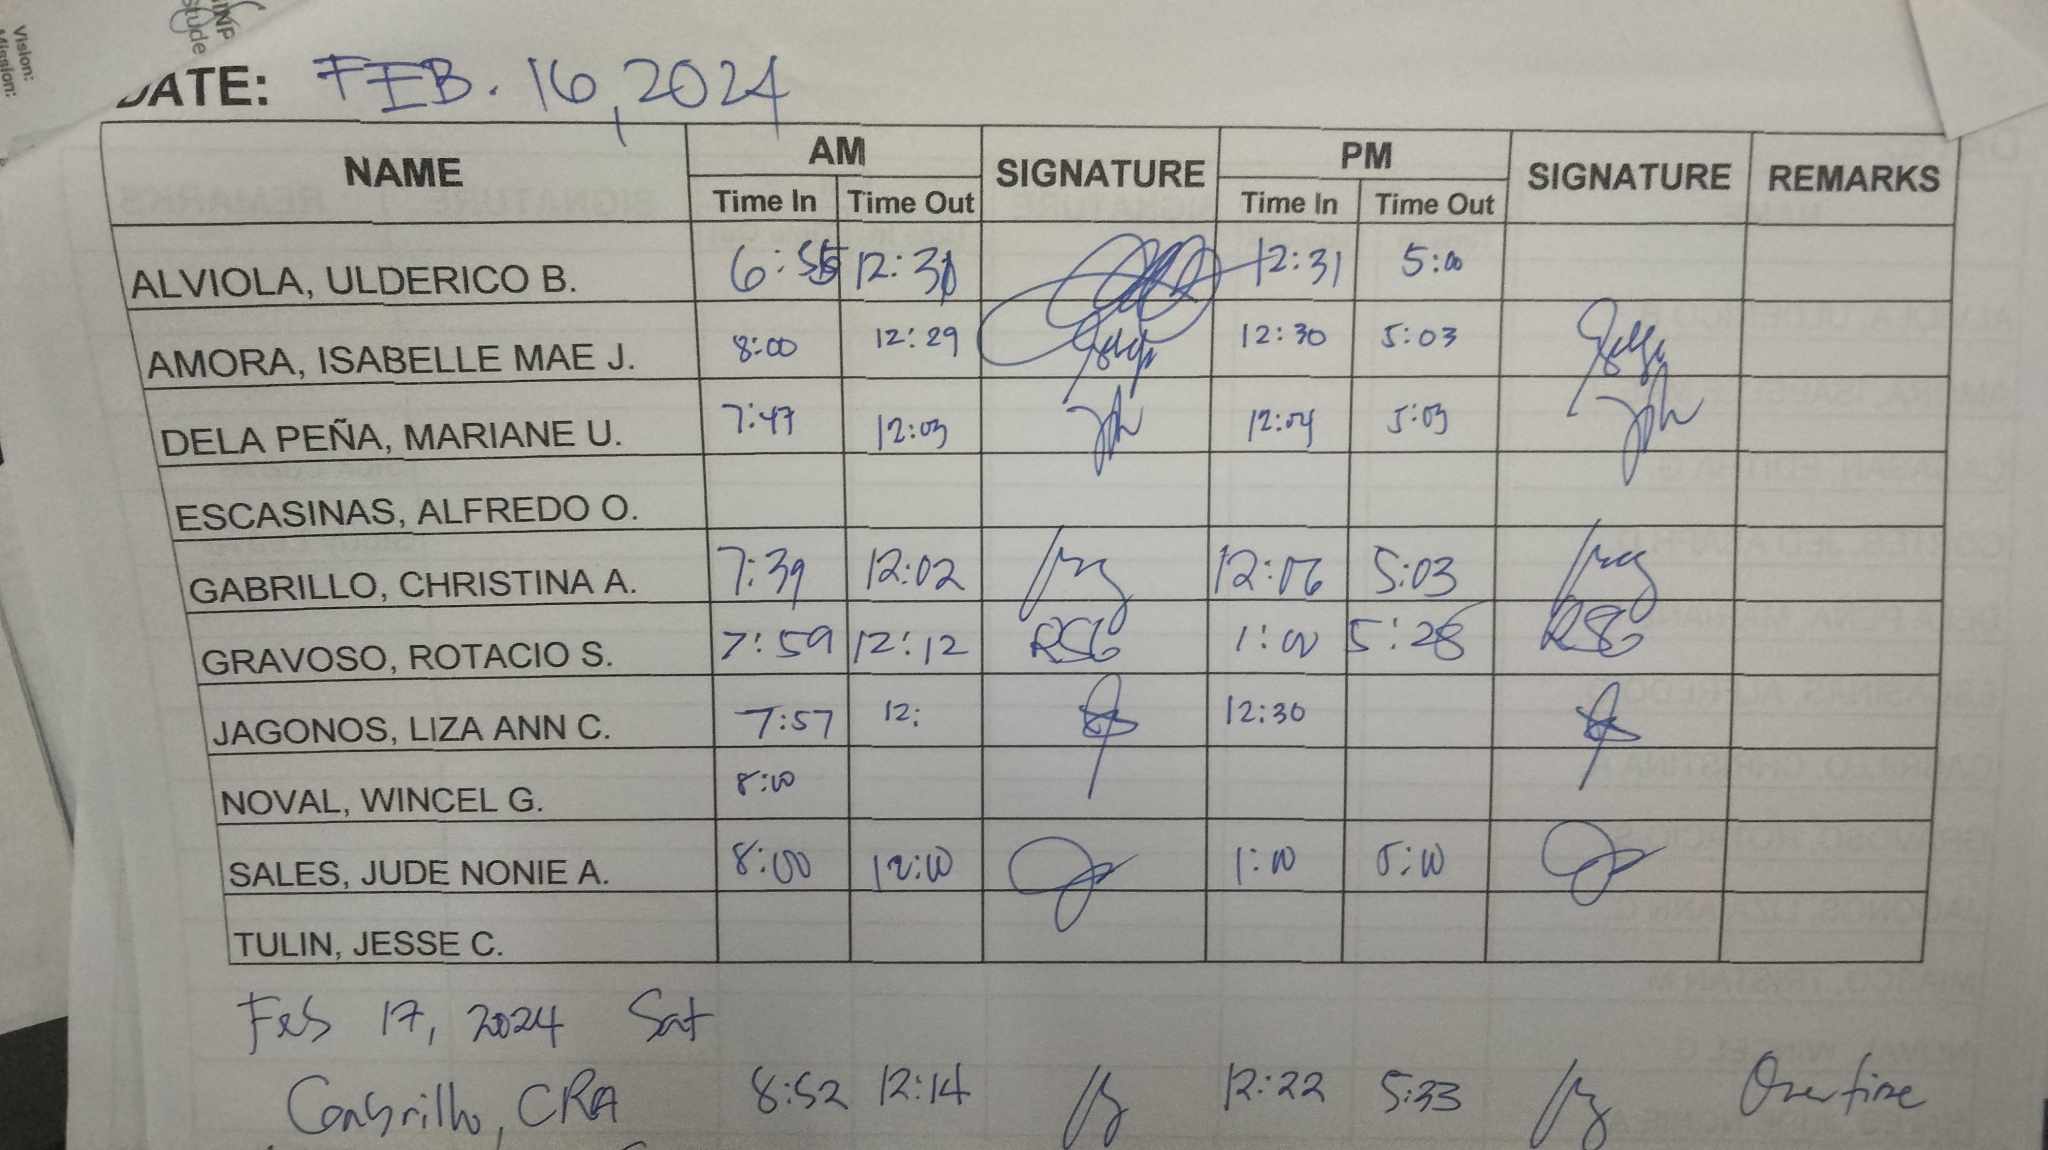 Vision:
Mission:
DATE: FEB. 16, 2024
NAME AM SIGNATURE PM SIGNATURE REMARKS
Time In Time Out Time In Time Out
ALVIOLA, ULDERICO B. 6:55 12:31 5:00
AMORA, ISABELLE MAE J. 8:00 12:29 12:30 5:03
DELA PEÑA, MARIANE U. 7:47 12:03 12:04 5:03
ESCASINAS, ALFREDO O.
GABRILLO, CHRISTINA A. 7:39 12:02 12:06 5:03
GRAVOSO, ROTACIO S. 7:59 12:12 RSG 1:00 5:28 RSG
JAGONOS, LIZA ANN C. 7:57 12: 12:30
NOVAL, WINCEL G. 8:00
SALES, JUDE NONIE A. 8:00 12:00 1:00 5:00
TULIN, JESSE C.
Feb 17, 2024 Sat
Gabrillo, CRA 8:52 12:14 12:22 5:33 Overtime